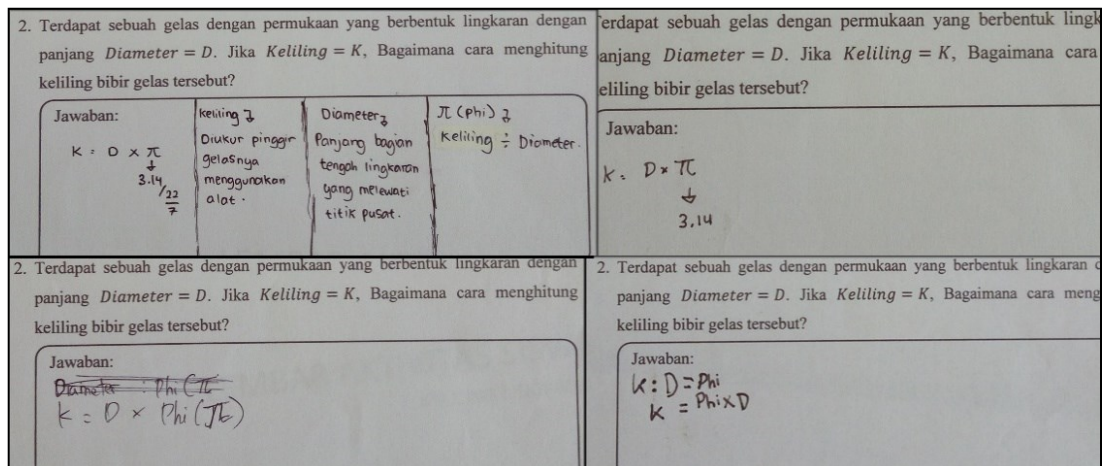 2. Terdapat sebuah gelas dengan permukaan yang berbentuk lingkaran dengan
panjang Diameter = D. Jika Keliling = K, Bagaimana cara menghitung
keliling bibir gelas tersebut?
Jawaban:
K = D × π
↓
3.14
/22
7
keliling →
Diukur pinggir
gelasnya
menggunakan
alat.
Diameter →
Panjang bagian
tengah lingkaran
yang melewati
titik pusat.
π (Phi) →
Keliling ÷ Diameter.
erdapat sebuah gelas dengan permukaan yang berbentuk lingk
anjang Diameter = D. Jika Keliling = K, Bagaimana cara
eliling bibir gelas tersebut?
Jawaban:
K = D × π
↓
3,14
2. Terdapat sebuah gelas dengan permukaan yang berbentuk lingkaran dengan
panjang Diameter = D. Jika Keliling = K, Bagaimana cara menghitung
keliling bibir gelas tersebut?
Jawaban:
Diameter : Phi (π
K = D × Phi (π)
2. Terdapat sebuah gelas dengan permukaan yang berbentuk lingkaran d
panjang Diameter = D. Jika Keliling = K, Bagaimana cara meng
keliling bibir gelas tersebut?
Jawaban:
K : D = Phi
K = Phi × D